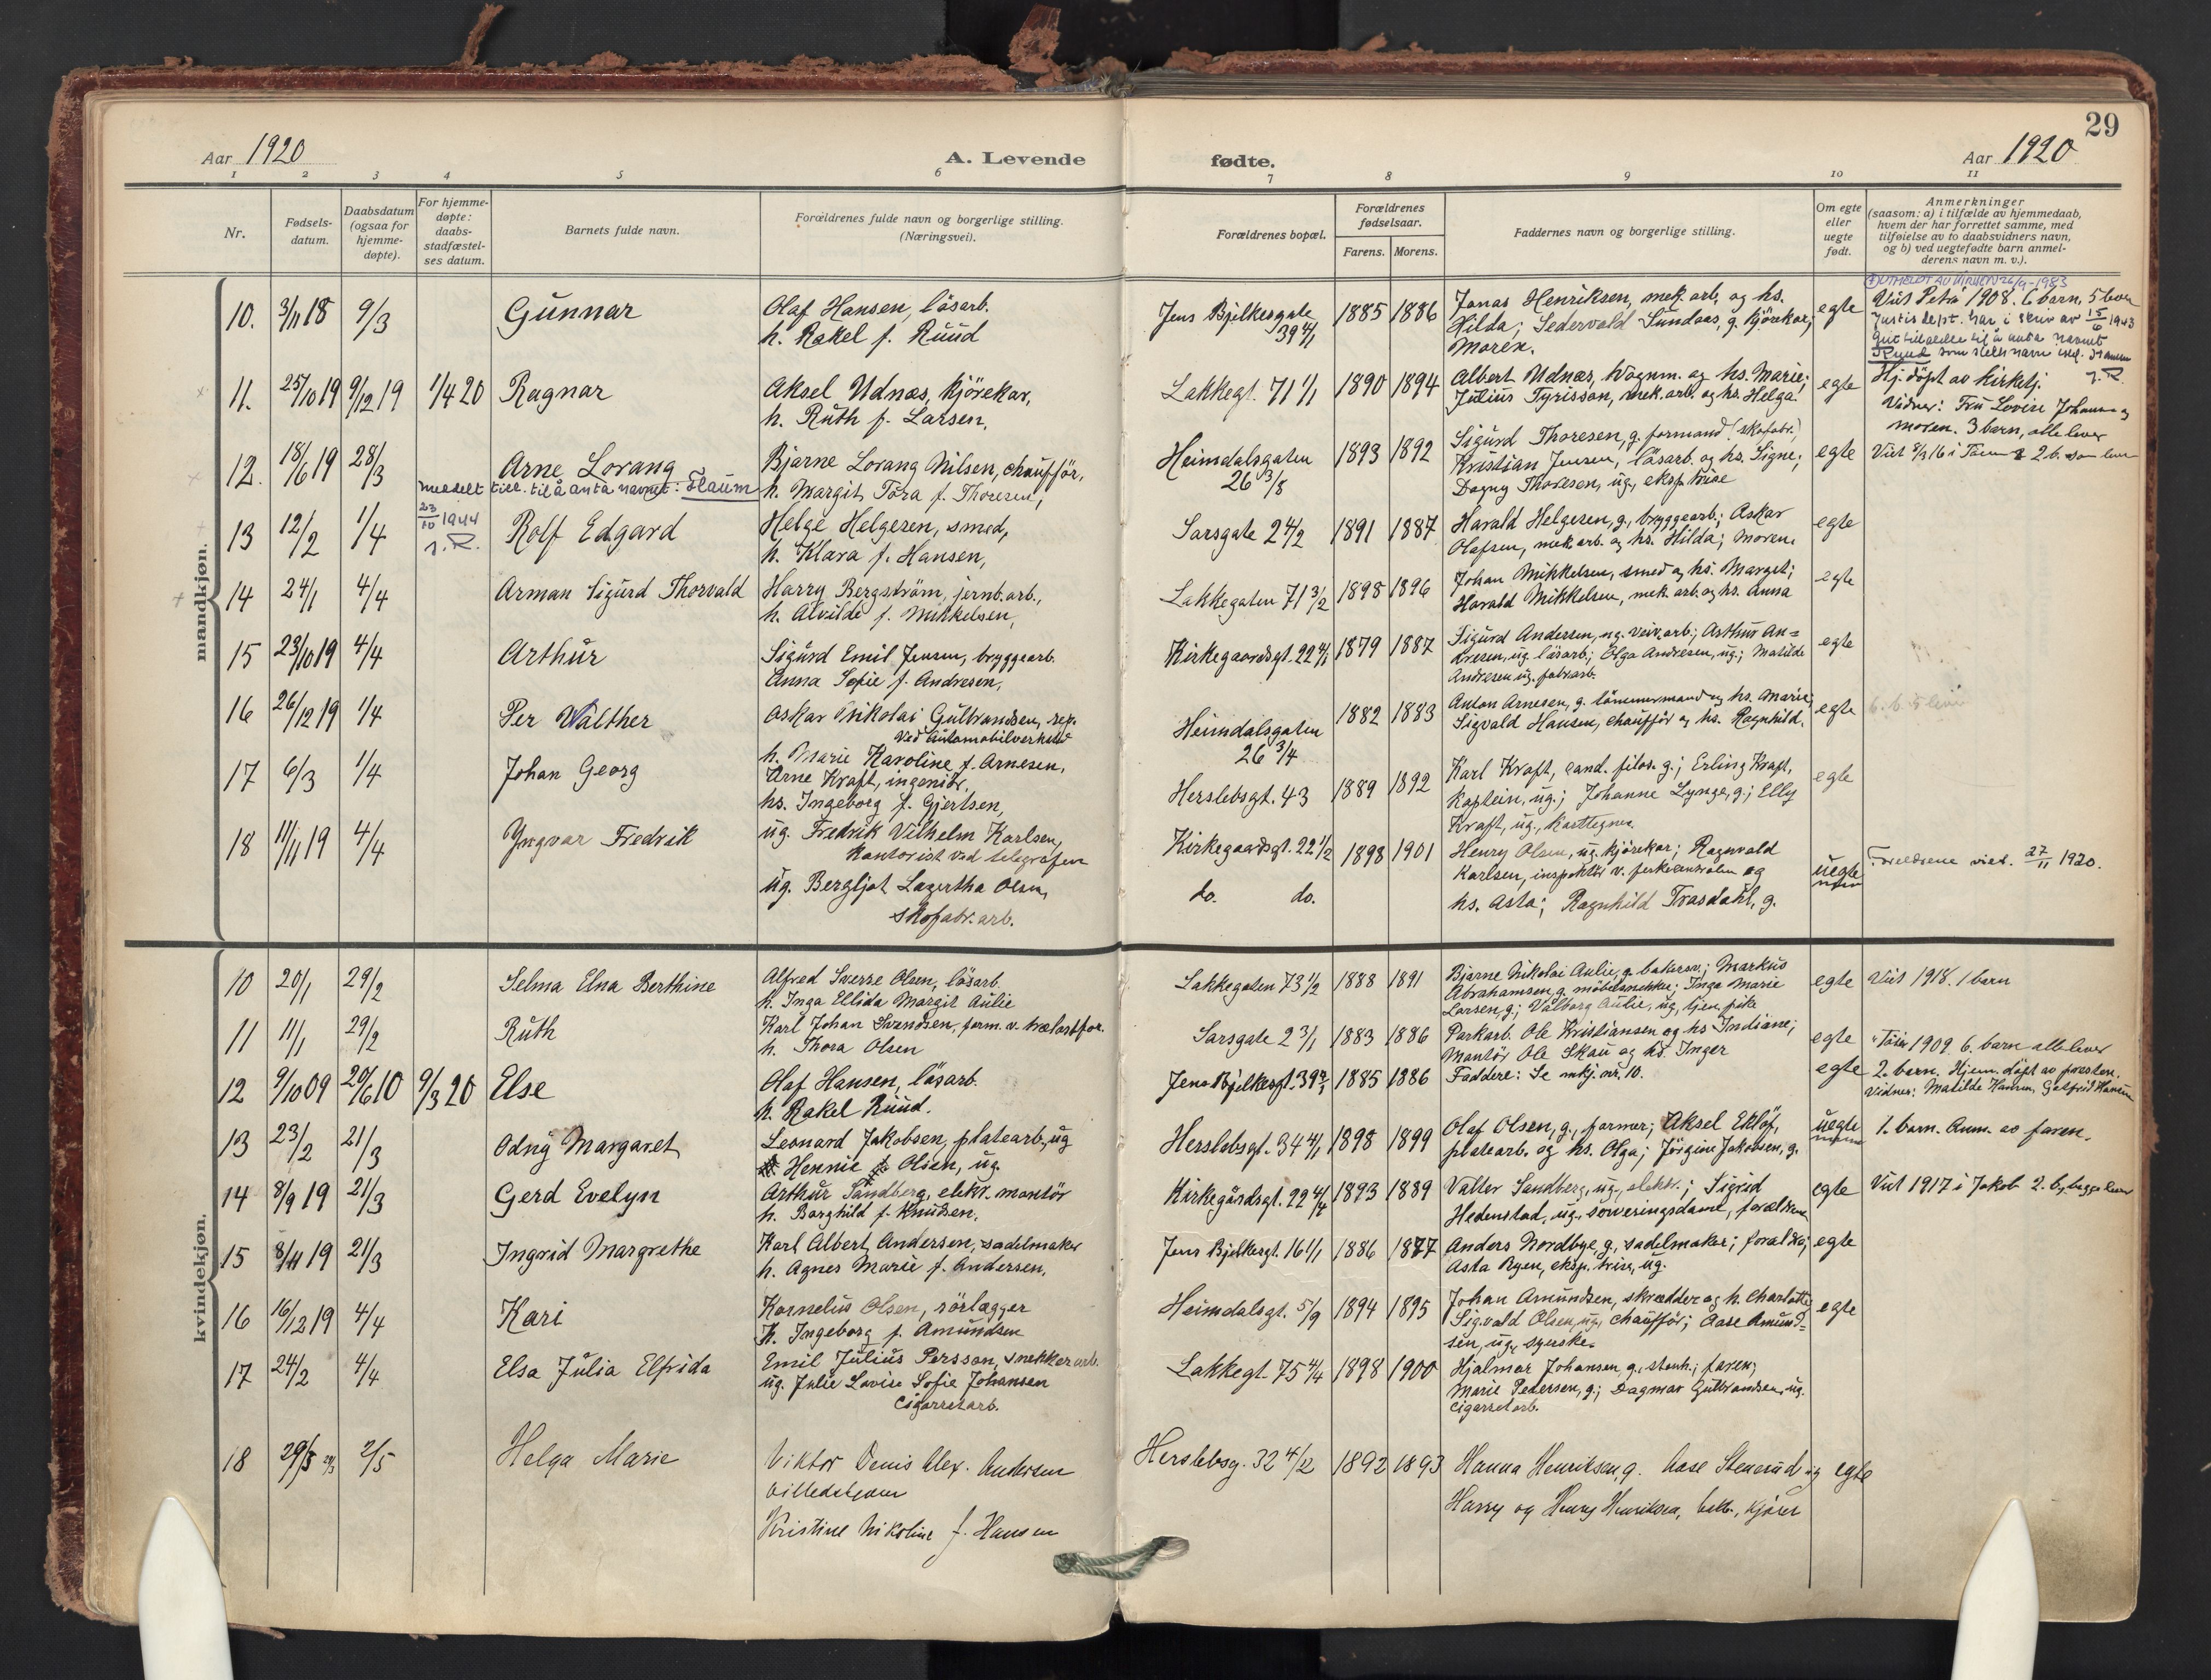 29
Aar 1920
A. Levende
fødte.
Aar 1920
1 2 3 4 5 6 7 8 9 10 11
Nr.
Fødsels-
datum.
Daabsdatum
(ogsaa for
hjemme-
døpte).
For hjemme-
døpte:
daabs-
stadfæstel-
ses datum.
Barnets fulde navn.
Forældrenes fulde navn og borgerlige stilling.
(Næringsvei).
Forældrenes bopæl.
Forældrenes
fødselsaar.
Farens. Morens.
Faddernes navn og borgerlige stilling.
Om egte
eller
uegte
født.
Anmerkninger
(saasom: a) i tilfælde av hjemmedaab,
hvem der har forrettet samme, med
tilføielse av to daabsvidners navn,
og b) ved uegtefødte barn anmel-
derens navn m. v.).
mandkjøn.
10. 3/11 18 9/3 Gunnar
Olaf Hansen, läsarb.
h. Rakel f. Ruud
Jens Bjelkesgate
39 4/1
1885 1886
Jonas Henriksen, mek. arb. og hs.
Hilda; Sedervald Sundaas, g. kjörekar;
Moren.
egte
UTMELDT AV KIRKEN 26/4-1983
Viet Petri 1908. 6 barn, 5 lever
Justisdept. har i skriv av 15/6 1943
gitt tillatelse til å anta navnet
Ruud som slektsnavn
11. 25/10 19 9/12 19 1/4 20 Ragnar
Aksel Udnæs, kjörekar,
h. Ruth f. Larsen,
Lakkegt. 71 1/1
1890 1894
Albert Udnæs, vognm. og hs. Marie;
Julius Tyrisson, mek. arb. og hs. Helga.
egte
Hj. döpt av kirketj.
Vidner: Fru Lovise Johansen og
moren. 3 barn, alle lever
12. 18/6 19 28/3 Arne Lorang
meddelt till. til å anta navnet: Flaum
23/10 1944
Bjarne Lorang Nilsen, chaufför,
h. Margit Tora f. Thoresen,
Heimdalsgaten
26 3/8
1893 1892
Sigurd Thoresen, g. formand (skofabr.)
Kristian Jensen, läsarb. og hs. Signe;
Dagny Thoresen, ug., eksp.trise
egte
13 12/2 1/4 Rolf Edgard
Helge Helgesen, smed,
h. Klara f. Hansen,
Sarsgate 2 4/2
1891 1887
Harald Helgesen, g., bryggearb.; Askar
Olafsen, mek arb. og hs. Hilda; moren.
egte
14 24/1 4/4 Arman Sigurd Thorvald
Harry Bergström, jernb. arb.,
h. Alvilde f. Mikkelsen,
Lakkegaten 71 3/2
1898 1896
Johan Mikkelsen, smed og hs. Marget;
Harald Mikkelsen, mek. arb. og hs. Anna
egte
15 23/10 19 4/4 Arthur
Sigurd Emil Jensen, bryggearb.
Anna Sofie f. Andresen,
Kirkegaardsgt. 22 4/1
1879 1887
Sigurd Andersen, ug. veiv.arb.; Arthur An=
dresen, ug. läsarb.; Olga Andresen, ug.; Matilde
Andresen ug. fabr.arb.
egte
16 26/12 19 1/4 Per Walther
Askar Nikolai Gulbrandsen, rep.
ved Automobilverksted
h. Marie Karoline f. Arnesen,
Heimdalsgaten
26 3/4
1882 1883
Anton Arnesen, g. tömmermand og hs. Marie;
Sigvald Hansen, chauffør og hs. Ragnhild.
egte
17 6/3 1/4 Johan Georg
Arne Kraft, ingeniör,
hs. Ingeborg f. Gjertsen,
Herslebsgt. 43
1889 1892
Karl Kraft, cand. filos. g.; Erling Kraft,
kaptein, ug.; Johanne Lynge, g.; Elly
Kraft, ug., karttegner.
egte
18 11/11 19 4/4 Yngvar Fredrik
ug. Fredrik Vilhelm Karlsen,
kontorist ved telegrafen
ug. Bergljot Lagertha Olsen,
skofabr.arb.
Kirkegaardsgt. 22 1/2
do. do.
1898 1901
Henry Olsen, ug. kjörekar; Ragnvald
Karlsen, inspektör v. og
hs. Asta; Ragnhild Trasdahl, g.
uegte
Foreldrene viet. 27/11 1920.
kvindekjøn.
10 20/1 29/2 Selma Elna Berthine
Alfred Sverre Olsen, läsarb.
h. Inga Ellida Margit Aulie
Lakkegaten 73 1/2
1888 1891
Bjarne Nikolai Aulie, g. bakersv.; Markus
Abrahamsen, g. möbelsnekker; Inga Marie
Larsen, g; Valborg Aulie, ug, tjen. pike
egte
Viet 1918. 1 barn
11 11/1 29/2 Ruth
Karl Johan Svendsen, form. v. trælastfor.
h. Thora Olsen
Sarsgate 2 3/1
1883 1886
Parkarb. Ole Kristiansen og hs Indiane;
Montör Ole Skau og hs. Inger
egte
" Töien 1909. 6. barn alle lever
12 9/10 09 20/6 10 9/3 20 Else
Olaf Hansen, läsarb.
h. Rakel Ruud.
Jens Bjelkesgt. 39 4/1
1885 1886
Faddere: Se mkj. nr. 10.
egte
2. barn. Hjem. döpt av presten.
Vidner: Matilde Hansen, Hansen
13 23/2 21/3 Odny Margaret
Leonard Jakobsen, platearb., ug
Hennie Olsen, ug.
Herslebsgt. 34 4/1
1898 1899
Olaf Olsen, g., former; Aksel Eklöf,
platearb. og hs. Olga; Jörgine Jakobsen, g.
uegte
1. barn. Anm. av faren.
14 8/9 19 21/3 Gerd Evelyn
Arthur Sandberg, elekt. montör
h. Borghild f. Knudsen.
Kirkegårdsgt. 22 4/4
1893 1889
Valter Sandberg, ug., elektr.; Sigrid
Hedenstad, ug., serveringsdame, forældrene
egte
Viet 1917 i Jakob 2. b, begge lever
15 8/11 19 21/3 Ingrid Margrethe
Karl Albert Andersen, sadelmaker
h. Agnes Marie f. Andersen.
Jens Bjelkesgt. 16 1/1
1886 1877
Anders Nordbye, g., sadelmaker; foraldre;
Asta Ryen, eksp. trise, ug.
egte
16 16/12 19 4/4 Kari
Kornelius Olsen, rörlægger
h. Ingeborg f. Amundsen
Heimdalsgt. 5/9
1894 1895
Johan Amundsen, skrædder og h. Charlotte;
Sigvald Olsen, ug, chauffør; Aase Amund=
sen, ug., syerske.
egte
17 24/2 4/4 Elsa Julia Elfrida
Emil Julius Persson, snekkerarb.
ug. Julie Lovise Sofie Johansen
Cigarretarb.
Lakkegt. 75 4/4
1898 1900
Hjalmar Johansen, g., stenh.; faren;
Marie Pedersen, g.; Dagmar Gulbrandsen, ug.
Cigarretarb.
18 2/5 Helga Marie
Viktor Denis Alex. Andersen
Kristine Nikoline f. Hansen
Herslebsg. 32 4/2
1892 1893
Hanna Henriksen, g. Aase Stenerud ug
Harry og Henry Henriksen, kjører
egte